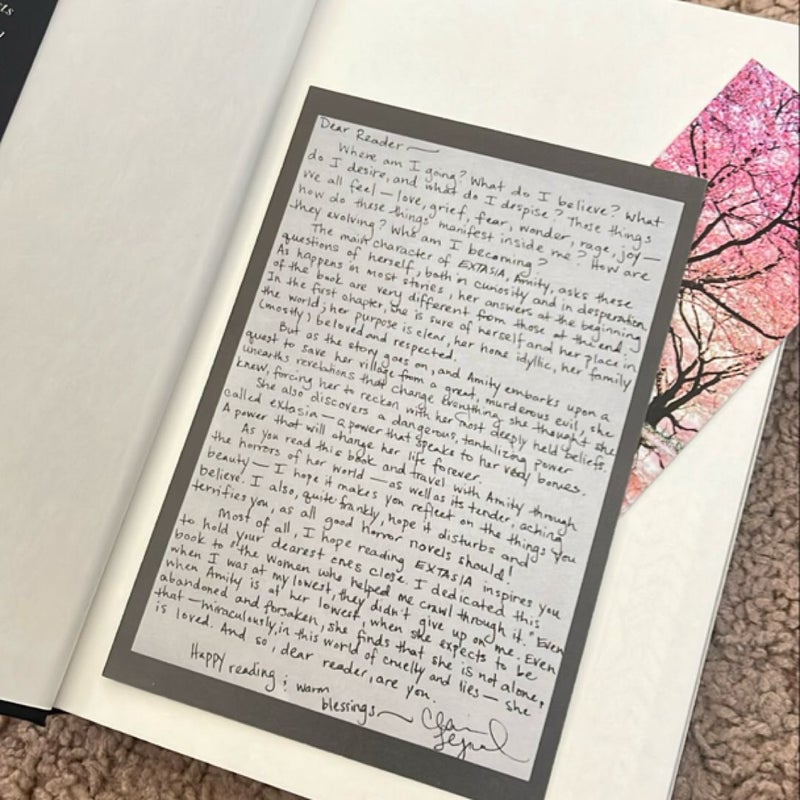 Dear Reader—
Where am I going? What do I believe? What
do I desire, and what do I despise? Those things
we all feel—love, grief, fear, wonder, rage, joy—
how do these things manifest inside me? How are
they evolving? Who am I becoming?
The main character of EXTASIA, Amity, asks these
questions of herself, both in curiosity and in desperation.
As happens in most stories, her answers at the beginning
of the book are very different from those at the end.
In the first chapter, she is sure of herself and her place in
the world; her purpose is clear, her home idyllic, her family
(mostly) beloved and respected.
But as the story goes on, and Amity embarks upon a
quest to save her village from a great, murderous evil, she
unearths revelations that change everything she thought she
knew, forcing her to reckon with her most deeply held beliefs.
She also discovers a dangerous, tantalizing power
called extasia—a power that speaks to her very bones.
A power that will change her life forever.
As you read this book and travel with Amity through
the horrors of her world—as well as its tender, aching
beauty—I hope it makes you reflect on the things you
believe. I also, quite frankly, hope it disturbs and
terrifies you, as all good horror novels should!
Most of all, I hope reading EXTASIA inspires you
to hold your dearest ones close. I dedicated this
book to "the women who helped me crawl through it." Even
when I was at my lowest, they didn't give up on me. Even
when Amity is at her lowest, when she expects to be
abandoned and forsaken, she finds that she is not alone,
that—miraculously, in this world of cruelty and lies—she
is loved. And so, dear reader, are you.
Happy reading & warm
blessings—